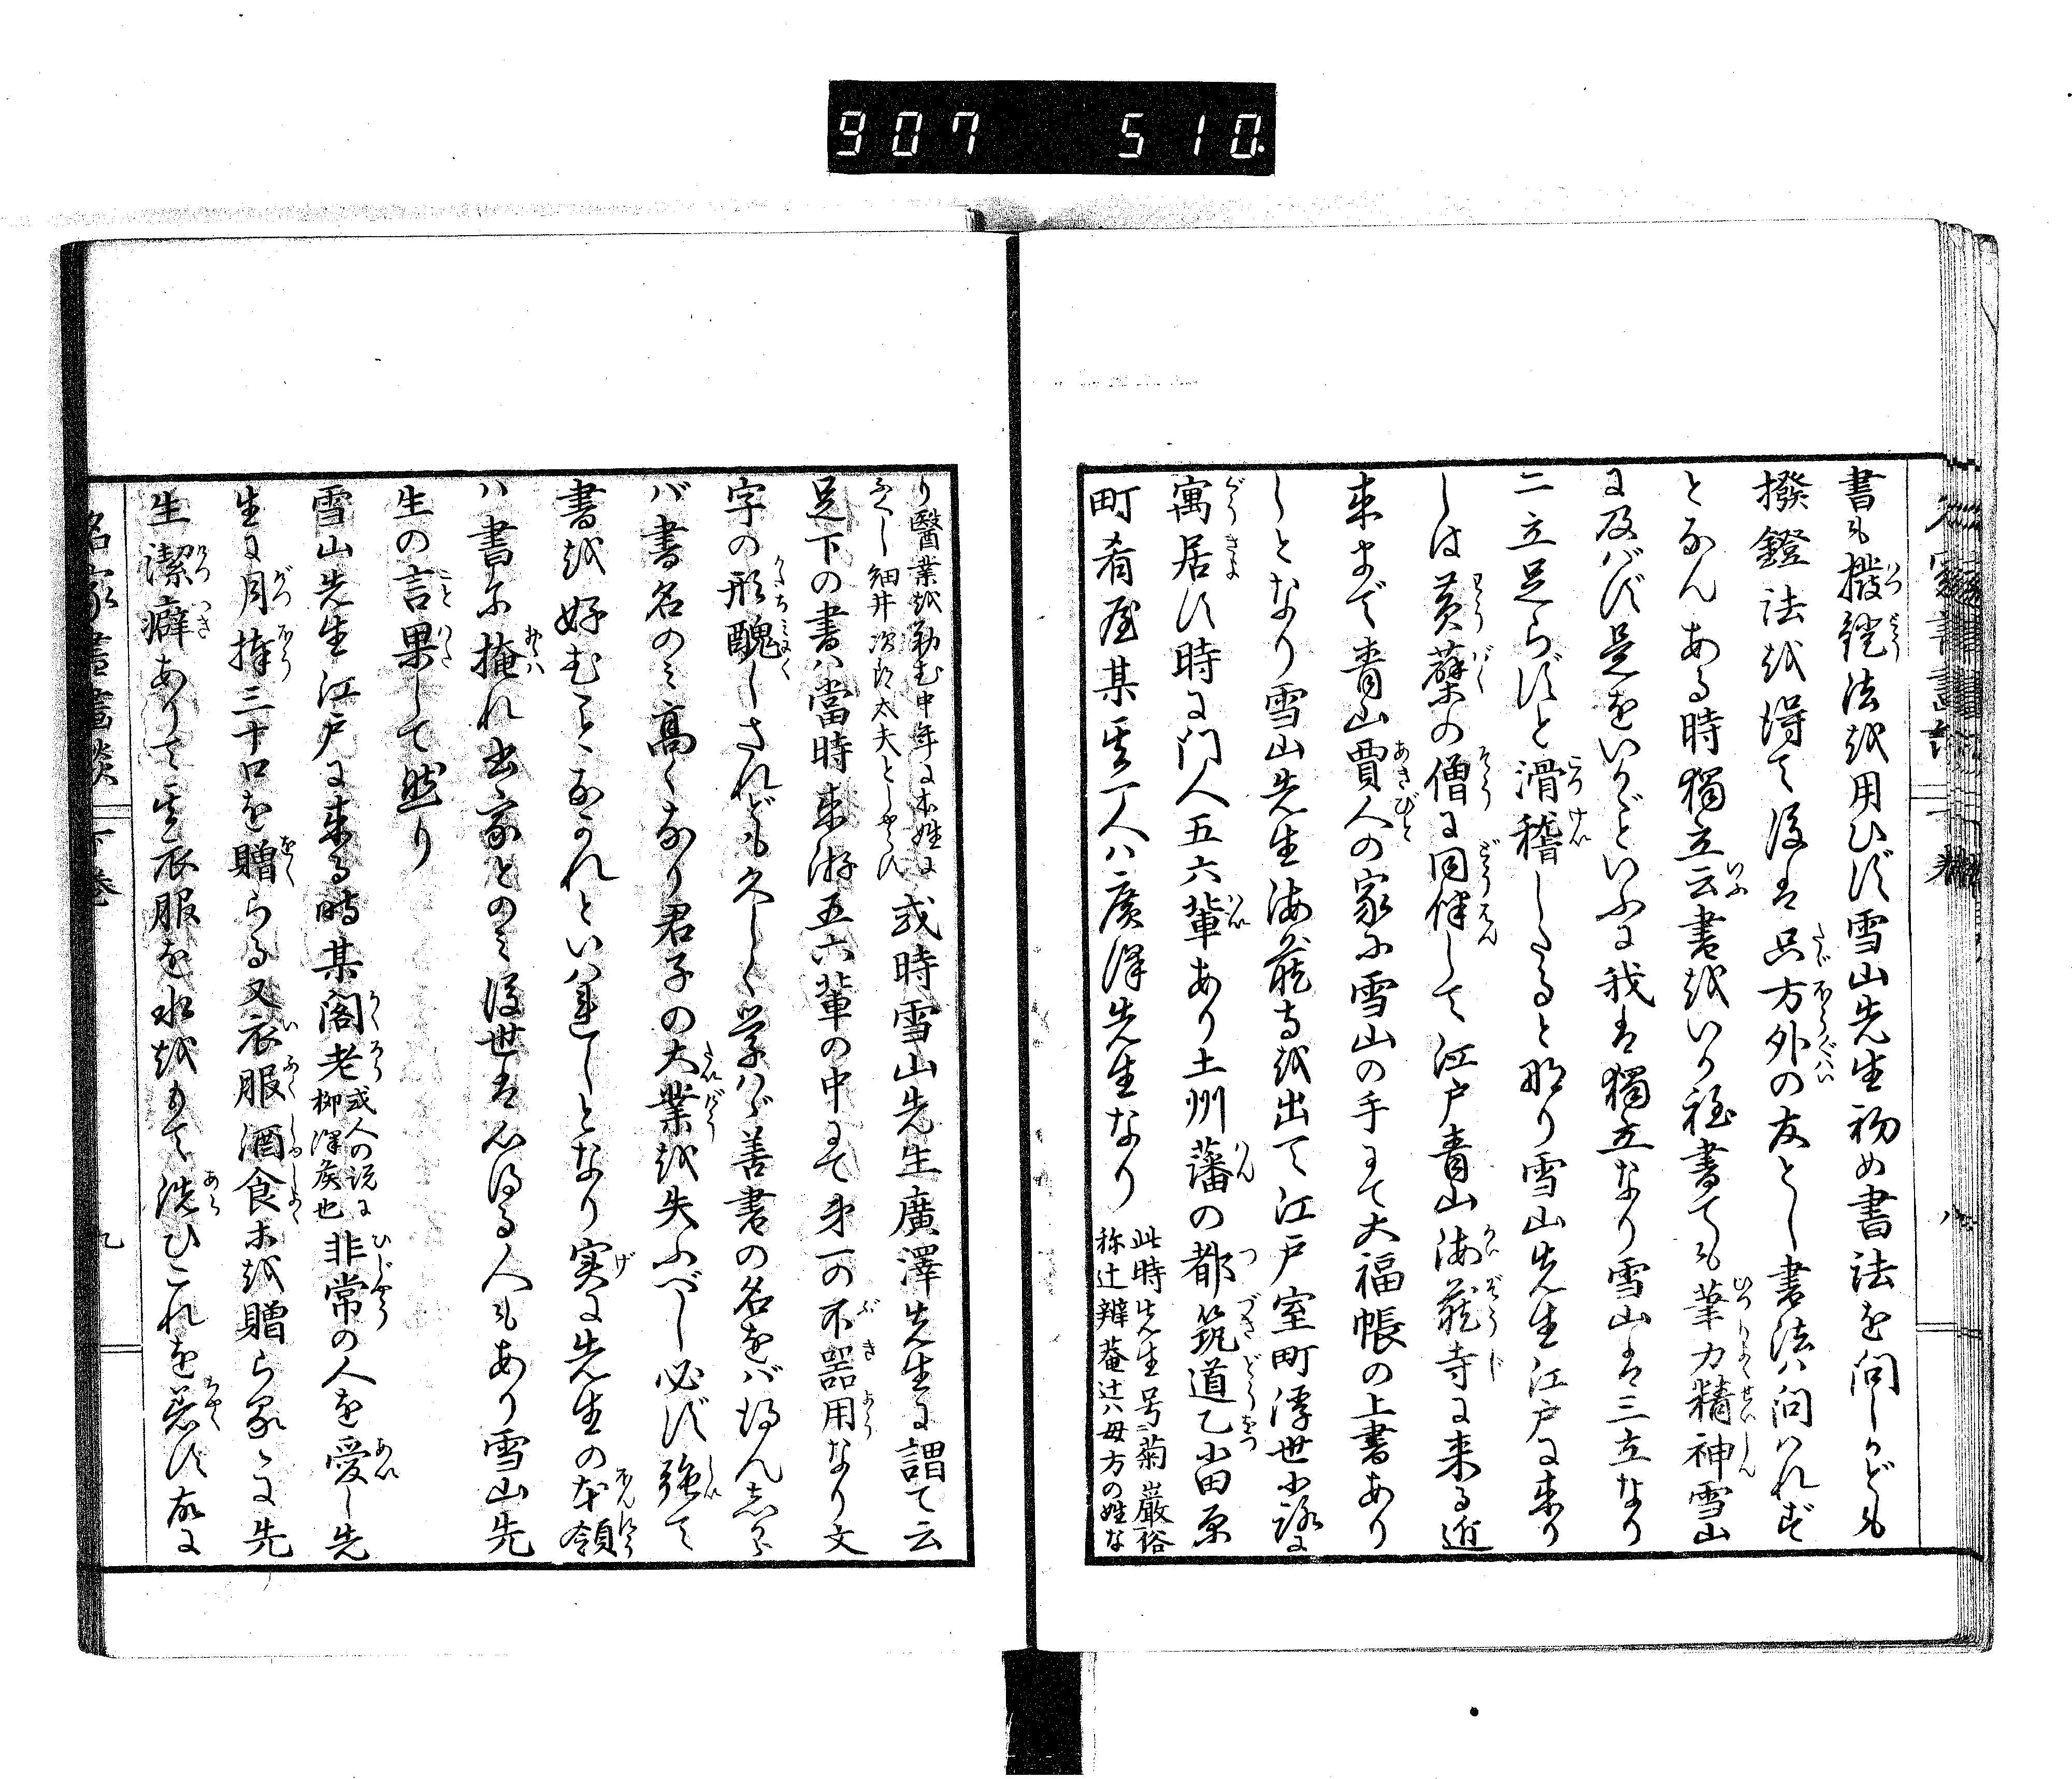 907 510
書も撥鐙法を用ひず雪山先生初め書法を問しかども
撥鐙法を得て後は只方外の友とし書法は問はれず
となんある時獨立云書をいか程書ても筆力精神雪山
に及ばず是をいかゞといふに我は獨立なり雪山は三立なり
二立足らずと滑稽したると那り雪山先生江戸に来り
しは黄檗の僧に同伴して江戸青山海蔵寺に来る近
来まで青山賈人の家に雪山の手にて大福帳の上書あり
しとなり雪山先生海蔵寺を出て江戸室町浮世小路に
寓居す時に門人五六輩あり土州藩の都筑道乙小田原
町肴屋某其一人は廣澤先生なり
此時先生号菊巌俗
称辻辧菴辻ハ母方の姓な
り醫業を勤む中年に本姓に
ふくし細井次郎太夫と
或時雪山先生廣澤先生に謂て云
足下の書ハ當時来游五六輩の中にて第一の不器用なり文
字の形醜しされども久しく学はゞ善書の名をば得んしから
バ書名のミ高くなり君子の大業を失ふべし必ず強て
書を好むことなかれといはれしとなり実に先生の本領
ハ書に掩れ出書家とのミ後世は心得る人もあり雪山先
生の言果して然り
雪山先生江戸に来る時某閣老
或人の説に
柳澤侯也
非常の人を愛し先
生に月捧三十口を贈らる又衣服酒食を贈らるゝに先
生潔癖ありて其衣服を水をもて洗ひこれを著す故に
名家書畫談
下巻
九
八